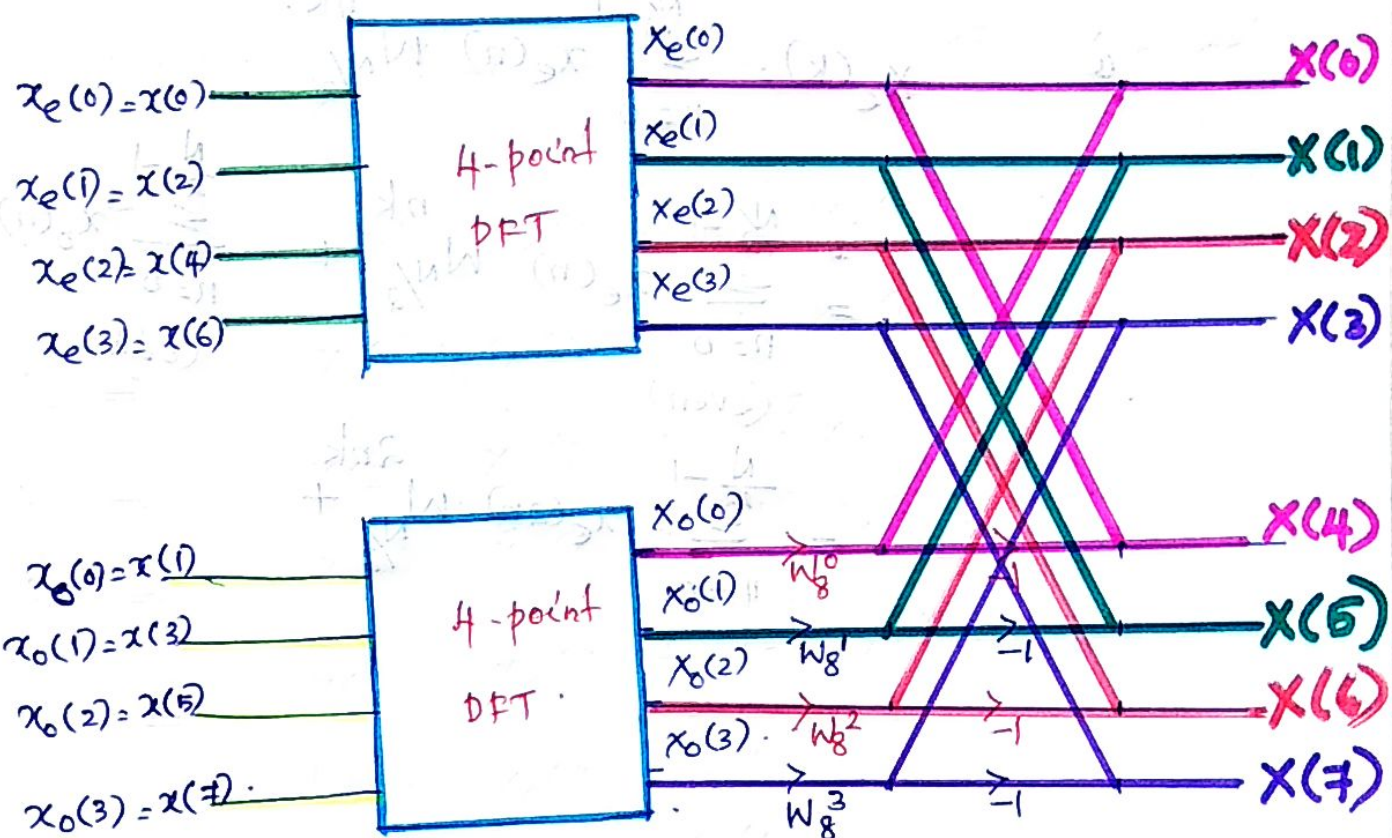 xₑ(0)=x(0)
xₑ(1)=x(2)
xₑ(2)=x(4)
xₑ(3)=x(6)
4-point
DFT
Xₑ(0)
Xₑ(1)
Xₑ(2)
Xₑ(3)
X(0)
X(1)
X(2)
X(3)
x₀(0)=x(1)
x₀(1)=x(3)
x₀(2)=x(5)
x₀(3)=x(7).
4-point
DFT.
X₀(0)
X₀(1)
X₀(2)
X₀(3).
W₈⁰
-1
W₈¹
-1
W₈²
-1
W₈³
-1
X(4)
X(5)
X(6)
X(7)